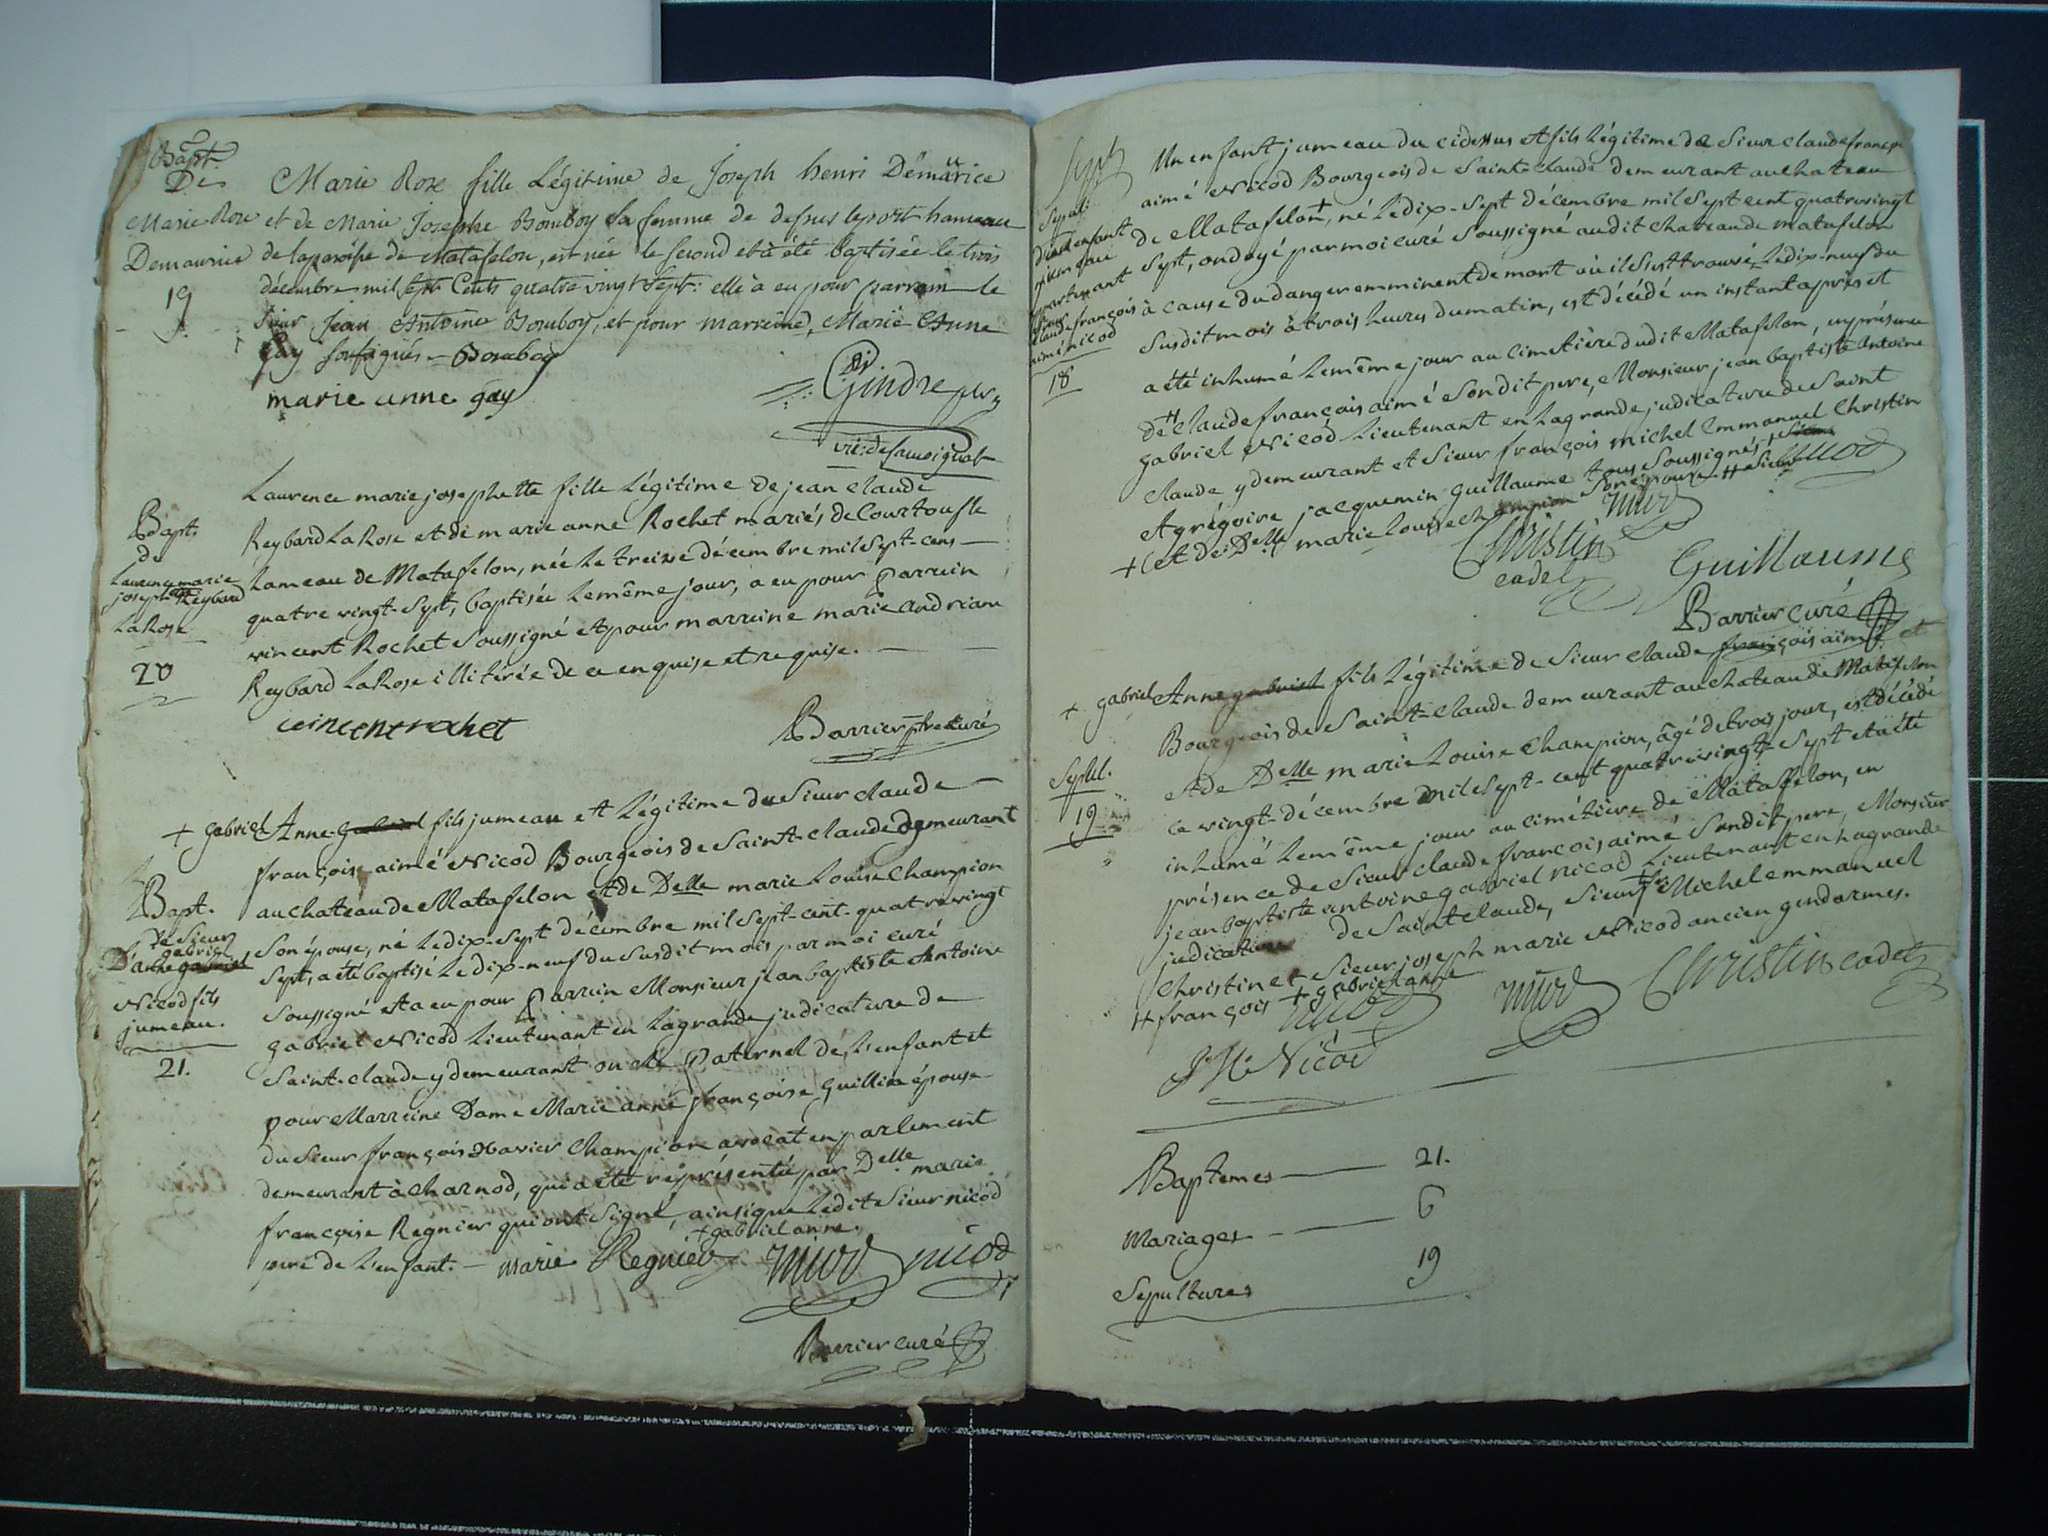 Bapt.
De
Marie Rose
Demaurice
19
Marie Rose fille Légitime de Joseph henri Démaurice
et de Marie Josephe Bomboy sa femme de dessus le port hameau
de la paroisse de Matafelon, est née le second et à été baptisée le trois
décembre mil sept Cents quatre vingt sept: elle à eu pour parrain le
Sieur Jean Antoine Bomboy, et pour marreine, Marie Anne
Gay soussignés - Bomboy
marie anne gay
Gindre
Bapt.
de
Laurence marie
josephette Reybard
LaRose
20
Laurence marie josephette fille Légitime de jean claude
Reybard LaRose et de marie anne Rochet mariés de Courtoufle
hameau de Matafelon, née Le treize décembre mil Sept-cens
quatre vingt-Sept, baptisée Le même jour, a eu pour Parrein
vincent Rochet Soussigné et pour marreine marie andriane
Reybard LaRose illitérée de ce enquise et requise.
vincent rochet
Barrier ptre curé
Bapt.
de Sieur
gabriel
D'anne gabriel
Nicod fils
jumeau.
21.
+ gabriel Anne gabriel fils jumeau et Légitime du Sieur claude
françois aimé Nicod Bourgeois de Saint-claude demeurant
au chateau de Matafelon et de Delle marie Louise Champion
Son épouse, né Le dix-Sept décembre mil Sept-cent-quatrevingt
Sept, a été baptisé Le dix-neuf du Susdit mois par moi curé
Soussigné et a eu pour Parrein Monsieur jean baptiste Antoine
gabriel Nicod Lieutenant en La grande judicature de
Saint-claude y demeurant oncle Paternel de L'enfant et
pour Marreine Dame Marie anne françoise Guillin épouse
du Sieur françois Xavier Champion avocat en parlement
demeurant à charnod, qui a été réprésentée par Delle marie
françoise Regnier qui ont Signé, ainsi que Ledit Sieur nicod
pere de L'enfant. - + gabriel anne.
marie Regnier nicod nicod
Barrier curé
Sépult.
D'un enfant
jumeau
apartenant
à Sieur
claude françois
aimé nicod
18
Un enfant jumeau du cidessus et fils Légitime de Sieur claude françois
aimé Nicod Bourgeois de Saint-claude demeurant au chateau
de Matafelon +, né Le dix-Sept décembre mil Sept cent quatrevingt
Sept, ondoyé par moi curé Soussigné audit chateau de matafelon
à cause du danger emminent de mort où il S'est trouvé Le dix-neuf du
Susdit mois à trois heures du matin, est décédé un instant après et
a été inhumé Le même jour au cimetière dudit Matafelon, en présence
de # claude françois aimé Sondit pere, Monsieur jean baptiste Antoine
gabriel Nicod Lieutenant en La grande judicature de Saint
claude y demeurant et Sieur françois michel Emmanuel Christin
et grégoire jacquemin Guillaume tous Soussignés
+ et de Delle marie Louise champion Son épouse # Sieur
nicod nicod
Christin
cadet
Guillaume
Barrier curé
Sépul.
19
+ gabriel Anne gabriel fils Légitime de Sieur claude françois aimé et
Bourgeois de Saint-claude demeurant au chateau de Matafelon
et de Delle marie Louise Champion, âgé de trois jour, est décédé
ce vingt-décembre mil Sept-cent quatrevingt-Sept et a été
inhumé Le même jour au cimétière de Mataffelon, en
présence de Sieur claude françois aimé Sondit pere, Monsieur
jean baptiste antoine gabriel nicod Lieutenant en La grande
judicature de Saint claude, Sieur # Michel emmanuel
Christin et Sieur joseph marie Nicod ancien gendarmes.
# françois + gabriel anne
nicod nicod Christin cadet
J M Nicod
Baptemes 21.
Mariages 6
Sépultures 19